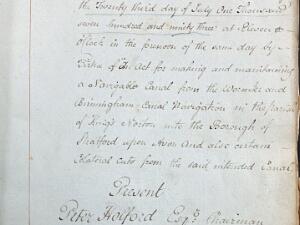 the Twenty Third day of July One Thousand
seven hundred and ninety three at Eleven o
Clock in the forenoon of the same day by
Virtue of An Act for making and maintaining
a Navigable Canal from the Worcester and
Birmingham Canal Navigation in the parish
of King's Norton into the Borough of
Stratford upon Avon and also certain
Collateral Cuts from the said intended Canal
Present
Peter Holford Esqr. Chairman